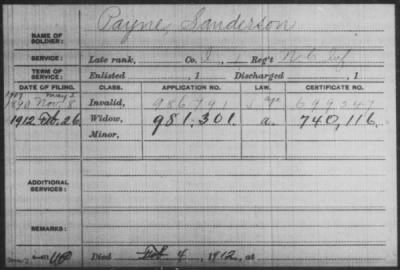 Payne, Sanderson
NAME OF SOLDIER:
SERVICE: Late rank, Co. I, 1 Reg't N.C. Inf
TERM OF SERVICE: Enlisted , 1 Discharged , 1
DATE OF FILING. CLASS. APPLICATION NO. LAW. CERTIFICATE NO.
1907 May 2
1890 Nov. 8 Invalid, 986791 Age 699247
1912 Feb. 26 Widow, 981.301. a. 740,116.
Minor,
ADDITIONAL SERVICES:
REMARKS:
Died Feb 4, 1912, at